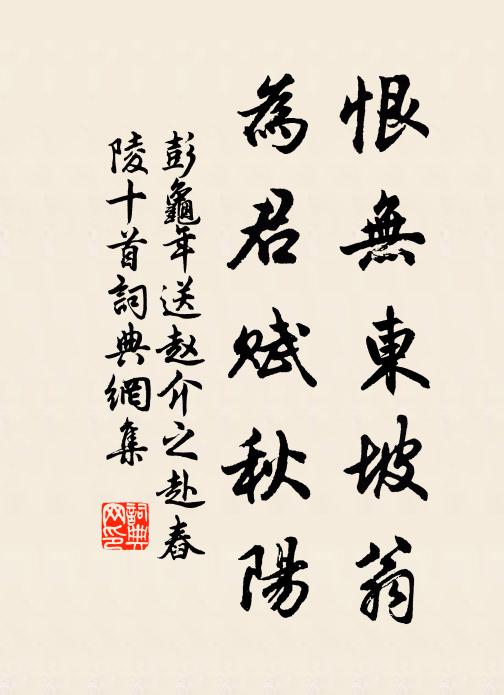 恨無東坡翁
為君賦秋陽
彭龜年送赵介之赴舂
陵十首詞典網集
詞典
网印